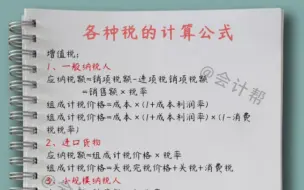 各种税的计算公式
增值税:
1、一般纳税人
应纳税额=销项税额-进项税销项税额
=销售额×税率
组成计税价格=成本×(1+成本利润率)
组成计税价格=成本×(1+成本利润率)÷(1-消费
税税率)
@会计帮
2、进口货物
应纳税额=组成计税价格×税率
组成计税价格=关税完税价格+关税+消费税
3、小规模纳税人